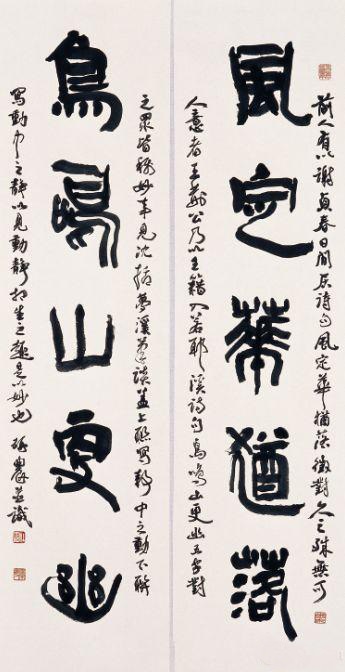 風定華猶落
鳥鳴山更幽
前人有以謝貞春日閒居詩句風定華猶落徵對久之殊無可
人意者王荆公乃以王籍入若耶溪詩句鳥鳴山更幽五字對
之眾皆稱妙事見沈括夢溪筆談蓋上聯寫靜中之動下聯
寫動中之靜以見動靜相生之趣是以妙也農並識